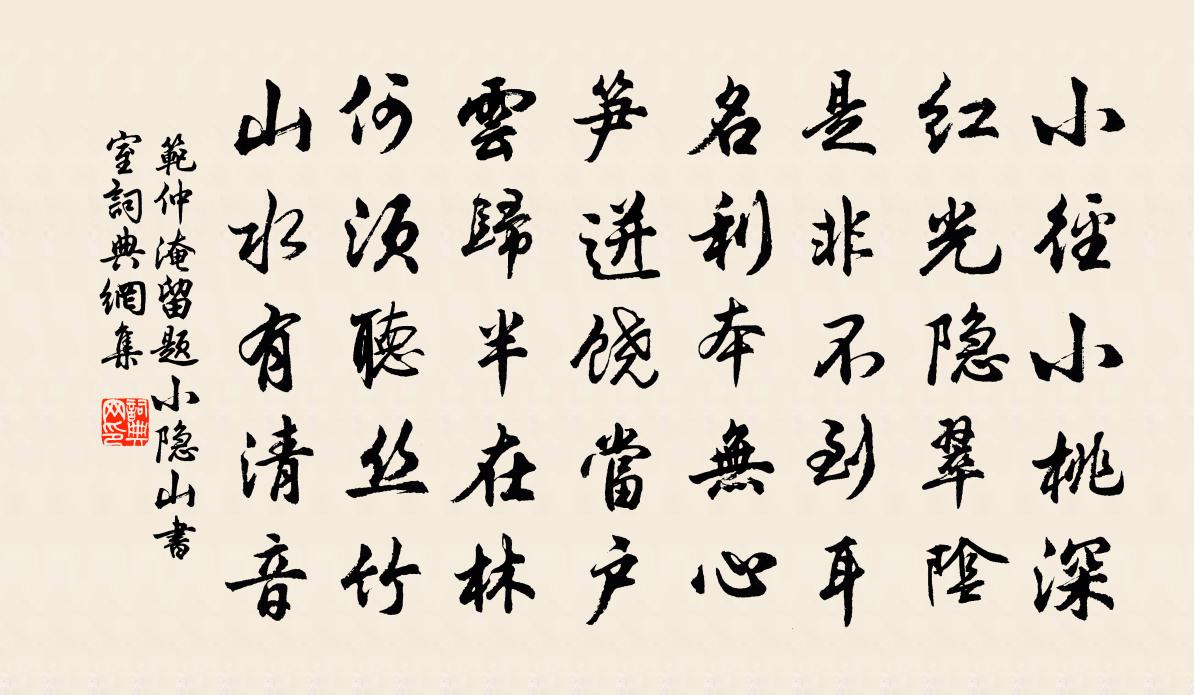 小徑小桃深
红光隐翠陰
是非不到耳
名利本無心
笋迸饶當户
雲歸半在林
何须聽丝竹
山水有清音
範仲淹留题小隐山書
室詞典網集
詞典網印